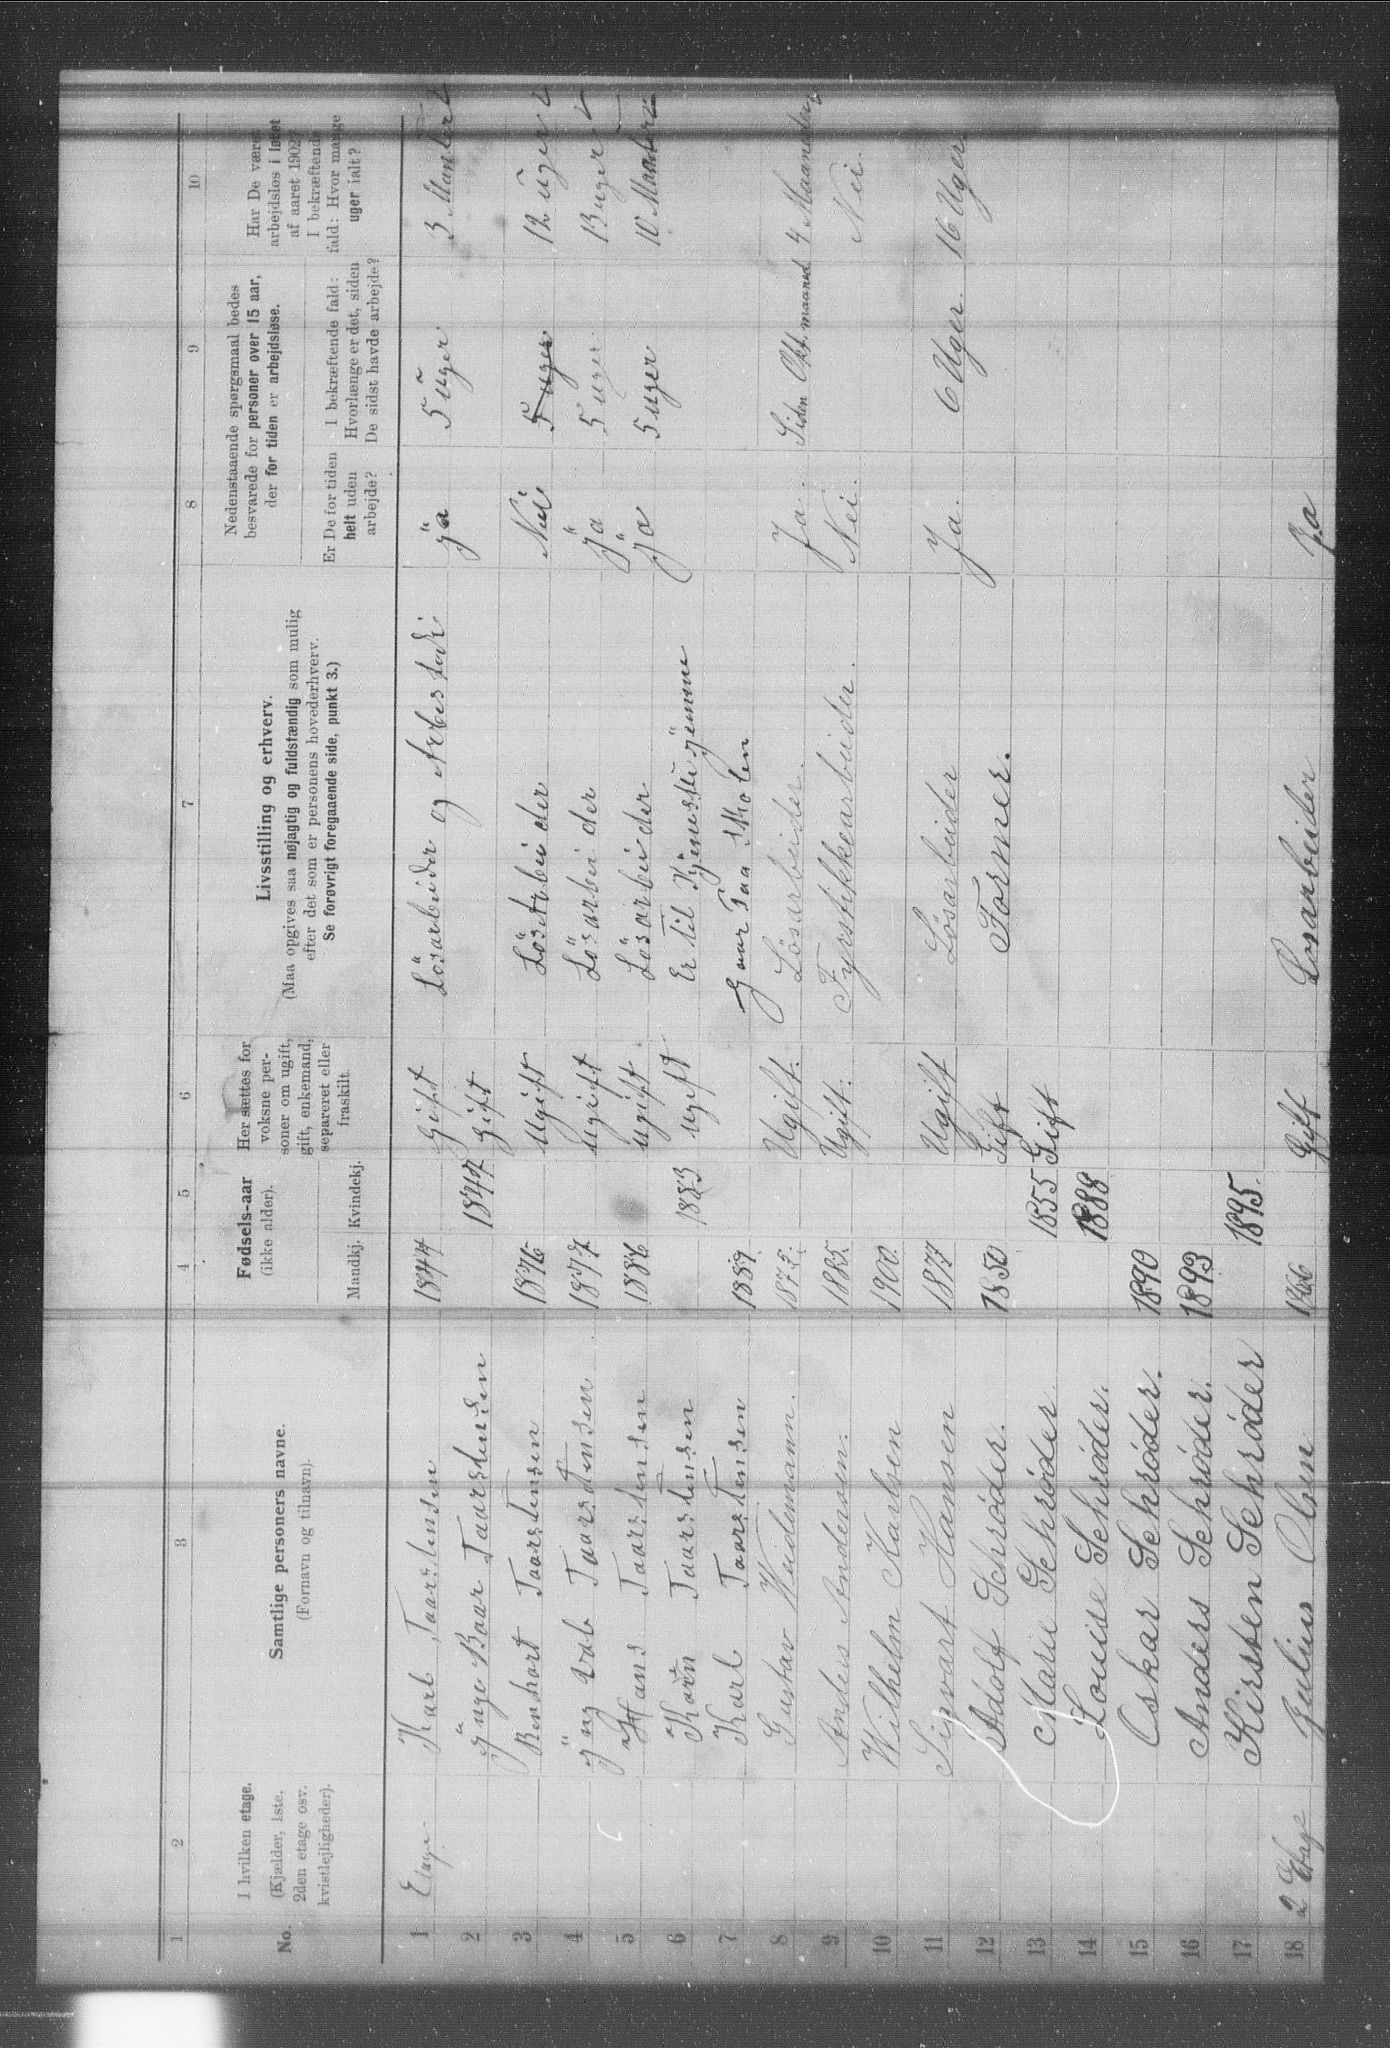 1 2 3 4 5 6 7 8 9 10
No.
I hvilken etage.
(Kjælder, 1ste.
2den etage osv.
kvistlejligheder).
Samtlige personers navne.
(Fornavn og tilnavn).
Fødsels-aar
(ikke alder).
Mandkj. Kvindekj.
Her sættes for
voksne per-
soner om ugift,
gift, enkemand,
separeret eller
fraskilt.
Livsstilling og erhverv.
(Maa opgives saa nøjagtig og fuldstændig som mulig
efter det som er personens hovederhverv.
Se forøvrigt foregaaende side, punkt 3.)
Nedenstaaende spørgsmaal bedes
besvarede for personer over 15 aar,
der for tiden er arbejdsløse.
Er De for tiden
helt uden
arbejde?
I bekræftende fald:
Hvorlænge er det, siden
De sidst havde arbejde?
Har De været
arbejdsløs i løbet
af aaret 1902?
I bekræftende
fald: Hvor mange
uger ialt?
1 Etage Karl Taarstensen 1844 Gift Lösarbeider og ja 5 uger 3
2 Taarstensen 1847 Gift
3 Taarstensen 1876 Ugift Lösarbeider Nei 5 uger 12 uger
4 Taarstensen 1877 Ugift Lösarbeider Ja 5 uger 13 uger
5 Hans Taarstensen 1886 Ugift Lösarbeider Ja 5 uger 10
6 Taarstensen 1883 ugift Er til
7 Karl Taarstensen 1889 Gaar Paa Skolen
8 Gustav Weidemann. Ugift. Lösarbeider. Ja. Siden Okt. maaned 4 Maaneder
9 Anders Andersen. 1885. Ugift. Fyrstikkearbeider. Nei. Nei.
10 Wilhelm Karlsen 1900
11 Sigvart Hansen 1877 Ugift Lösarbeider Ja. 6 Uger. 16 Uger
12 Adolf Schrøder. 1850 Gift Former.
13 Marie Schrøder. 1855 Gift
14 Louise Schrøder. 1888
15 Oskar Schrøder. 1890
16 Anders Schrøder. 1893
17 Kirsten Schrøder 1895.
18 2 Etage Julius Olsen 1866 Gift Losarbeider Ja